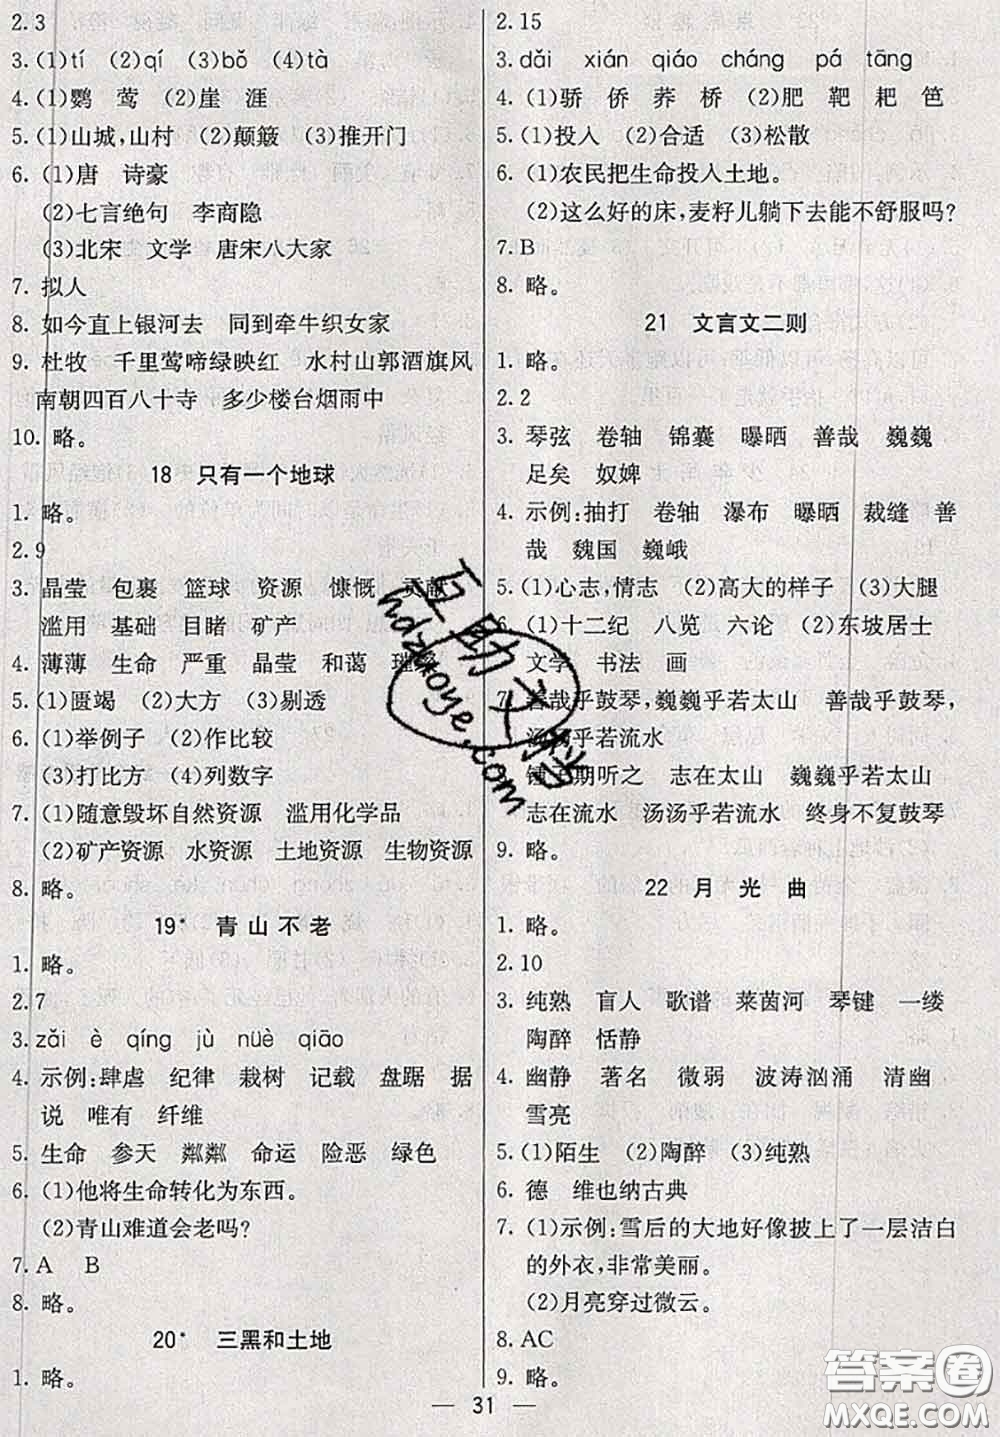 2.3
3.(1)tí (2)qí (3)bǒ (4)tà
4.(1)鹦 莺 (2)崖 涯
5.(1)山城,山村 (2)颠簸 (3)推开门
6.(1)唐 诗豪
(2)七言绝句 李商隐
(3)北宋 文学 唐宋八大家
7. 拟人
8. 如今直上银河去 同到牵牛织女家
9. 杜牧 千里莺啼绿映红 水村山郭酒旗风
南朝四百八十寺 多少楼台烟雨中
10. 略。
18 只有一个地球
1. 略。
2.9
3. 晶莹 包裹 篮球 资源 慷慨 贡献
滥用 基础 目睹 矿产
4. 薄薄 生命 严重 晶莹 和蔼
5.(1)匮竭 (2)大方 (3)剔透
6.(1)举例子 (2)作比较
(3)打比方 (4)列数字
7.(1)随意毁坏自然资源 滥用化学品
(2)矿产资源 水资源 土地资源 生物资源
8. 略。
19* 青山不老
1. 略。
2.7
3. zǎi è qíng jù nüè qiāo
4. 示例:肆虐 纪律 栽树 记载 盘踞 据
说 唯有 纤维
5. 生命 参天 粼粼 命运 险恶 绿色
6.(1)他将生命转化为东西。
(2)青山难道会老吗?
7. A B
8. 略。
20* 三黑和土地
1. 略。
2.15
3. dǎi xián qiáo cháng pá tāng
4.(1)骄 侨 荞 桥 (2)肥 靶 耙 笆
5.(1)投入 (2)合适 (3)松散
6.(1)农民把生命投入土地。
(2)这么好的床,麦籽儿躺下去能不舒服吗?
7. B
8. 略。
21 文言文二则
1. 略。
2.2
3. 琴弦 卷轴 锦囊 曝晒 善哉 巍巍
足矣 奴婢
4. 示例:抽打 卷轴 瀑布 曝晒 裁缝 善
哉 魏国 巍峨
5.(1)心志,情志 (2)高大的样子 (3)大腿
6.(1)十二纪 八览 六论 (2)东坡居士
文学 书法 画
7. 善哉乎鼓琴,巍巍乎若太山 善哉乎鼓琴,
汤汤乎若流水
锺子期听之 志在太山 巍巍乎若太山
志在流水 汤汤乎若流水 终身不复鼓琴
9. 略。
22 月光曲
1. 略。
2.10
3. 纯熟 盲人 歌谱 莱茵河 琴键 一缕
陶醉 恬静
4. 幽静 著名 微弱 波涛汹涌 清幽
雪亮
5.(1)陌生 (2)陶醉 (3)纯熟
6. 德 维也纳古典
7.(1)示例:雪后的大地好像披上了一层洁白
的外衣,非常美丽。
(2)月亮穿过微云。
8. AC
9. 略。
31
答案圈
MXQE.COM